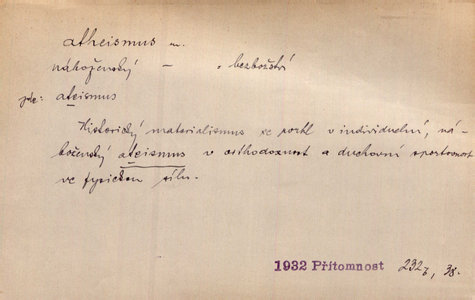 atheismus m.
náboženský — „ bezbožství
zde: ateismus
Historický materialismus se vrhl v individuelní, ná-
boženský ateismus v orthodoxnost a duchovní sportovnost
ve fysickou sílu.
1932 Přítomnost 232, 38.